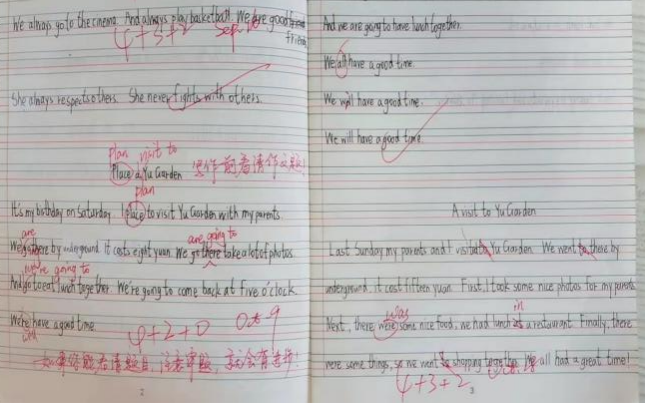 We always go to the cinema. And always play basketball. We are good
friends
4+3+2
She always respects others. She never fights with others.
plan visit to
Place a Yu Garden 写作前看清作文题!
plan
It's my birthday on Saturday. I place to visit Yu Garden with my parents.
are are going to
We go there by underground. It costs eight yuan. We go there take a lot of photos.
we're going to
And go to eat lunch together. We're going to come back at five o'clock.
We're have a good time.
will
4+2+0
2
And we are going to have lunch together.
We all have a good time.
We will have a good time.
We will have a good time.
A visit to Yu Garden
Last Sunday my parents and I visited to Yu Garden. We went to there by
underground, it cost fifteen yuan. First, I took some nice photos for my parents.
was in
Next, there were some nice food, we had lunch at a restaurant. Finally, there
were some things, so we went to shopping together. We all had a great time!
4+3+2
3